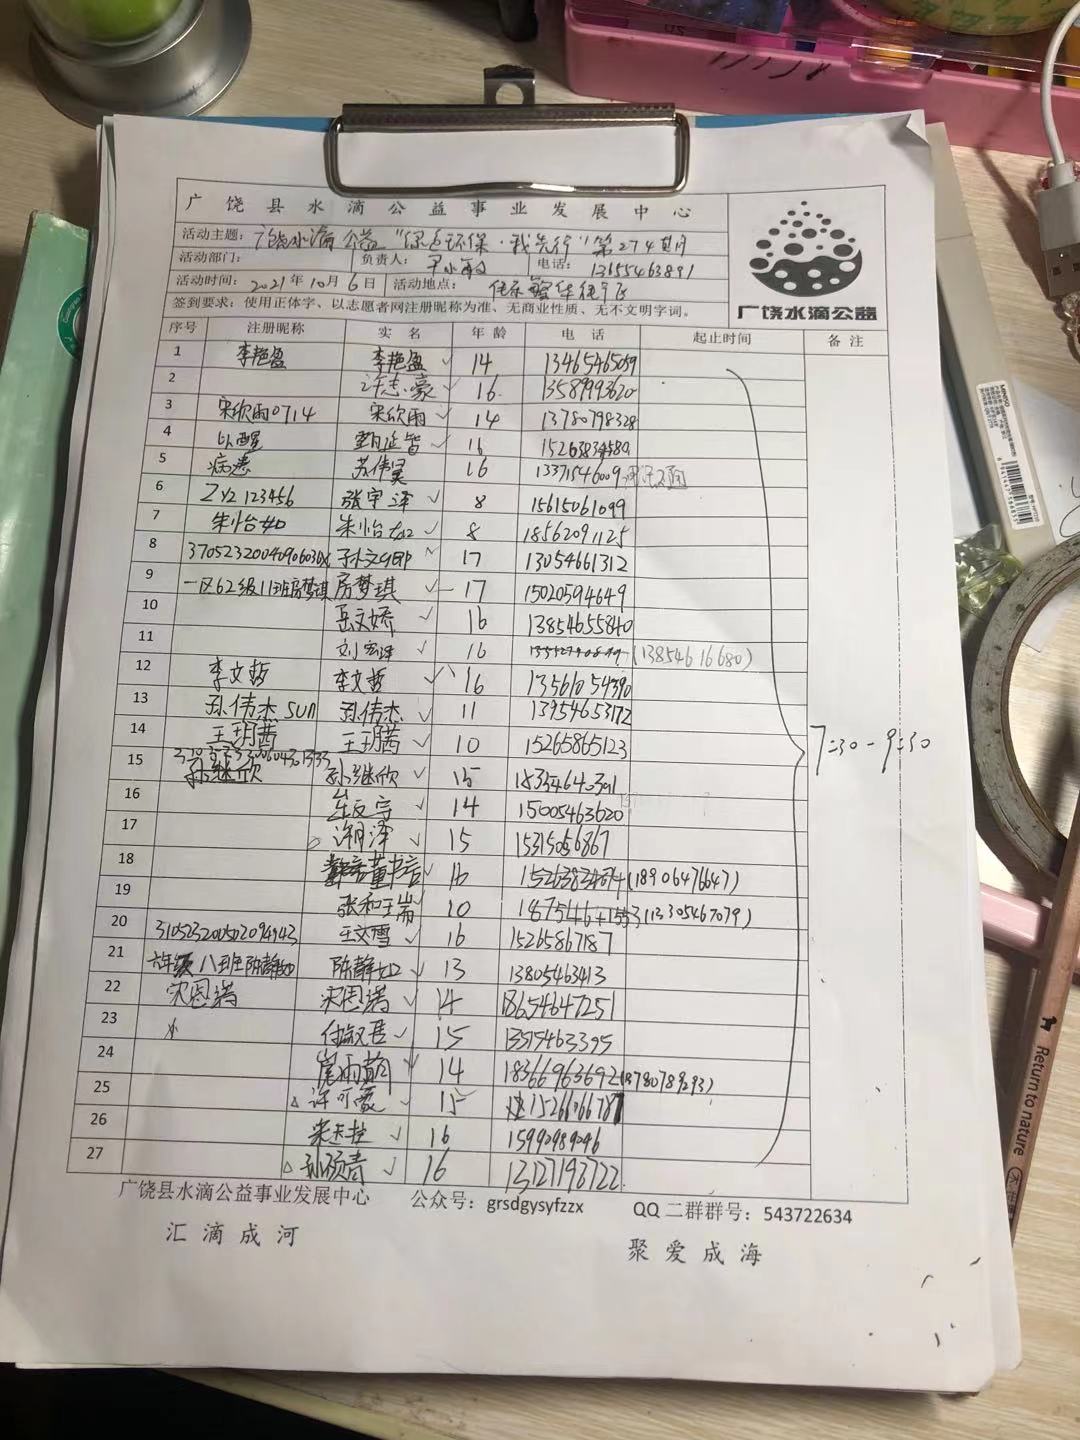 广饶县水滴公益事业发展中心
活动主题：广饶水滴公益“绿色环保·我先行”第274期
活动部门： 负责人： 电话：13655463891
活动时间：2021年10月6日 活动地点：
签到要求：使用正体字、以志愿者网注册昵称为准、无商业性质、无不文明字词。
广饶水滴公益
序号 注册昵称 实名 年龄 电话 起止时间 备注
1 李艳盈 李艳盈 14 13465465059
2 许志豪 16 13589993620
3 宋欣雨0714 宋欣雨 14 13780798328
4 16
5 苏伟昊 16 13371546009
6 ZYZ123456 张宇泽 8 15615061099
7 朱怡如 朱怡如 8 18562091125
8 孙文 17 13054661312
9 一区62级11班房梦琪 房梦琪 17 15020594649
10 岳文娇 16 13854655840
11 刘宏泽 16 (13854616680)
12 李文哲 李文哲 16 13561054390
13 孙伟杰SUN 孙伟杰 11 13954653172
14 王玥茜 王玥茜 10 15265865123
7:30-9:30
15 孙继欣 孙继欣 15
16 14 15005463620
17 许月泽 15 15315056867
18 董书言 16 (18906476647)
19 张和瑞 10 (13305467079)
20 王文雪 16 15265867187
21 六年级八班陈静如 陈静如 13 13805463413
22 宋恩诺 宋恩诺 14 18654647251
23 15 13515463395
24 崔雨萌 14 18366963692(13780789293)
25 许可豪 15
26 16
27 孙硕青 16 13127193722
广饶县水滴公益事业发展中心 公众号：grsdgysyfzzx QQ二群群号：543722634
汇滴成河 聚爱成海
MINISO
Return to nature